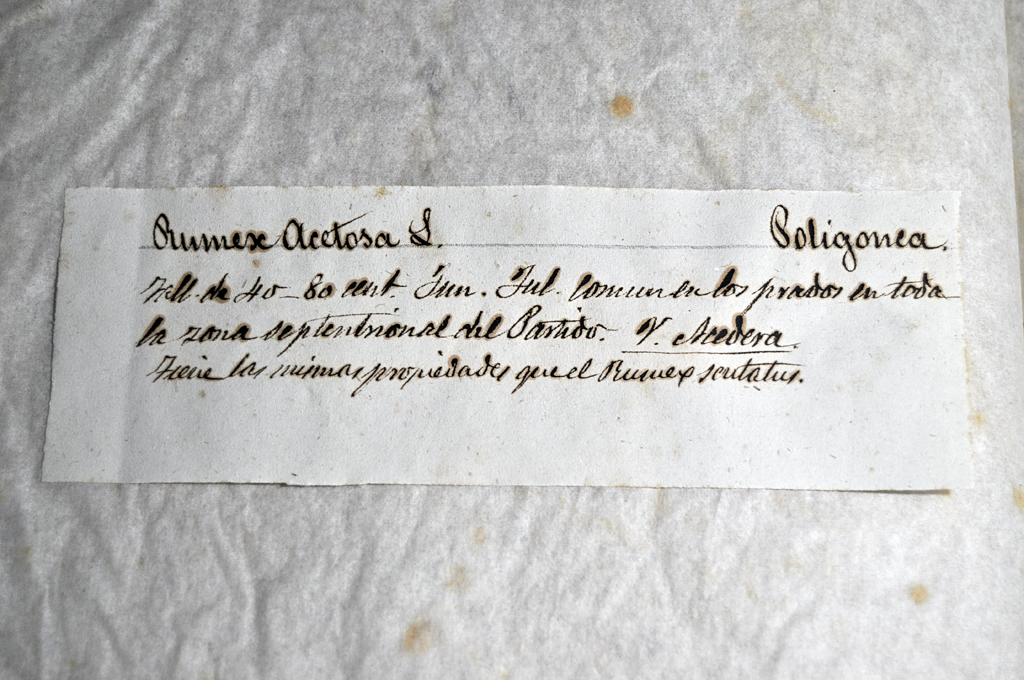 Rumex Acetosa L. Poligonea.
Tell. de 40-80 cent. Jun. Jul. comun en los prados en toda
la zona septentrional del Partido. V. Acedera.
Tiene las mismas propiedades que el Rumex scutatus.